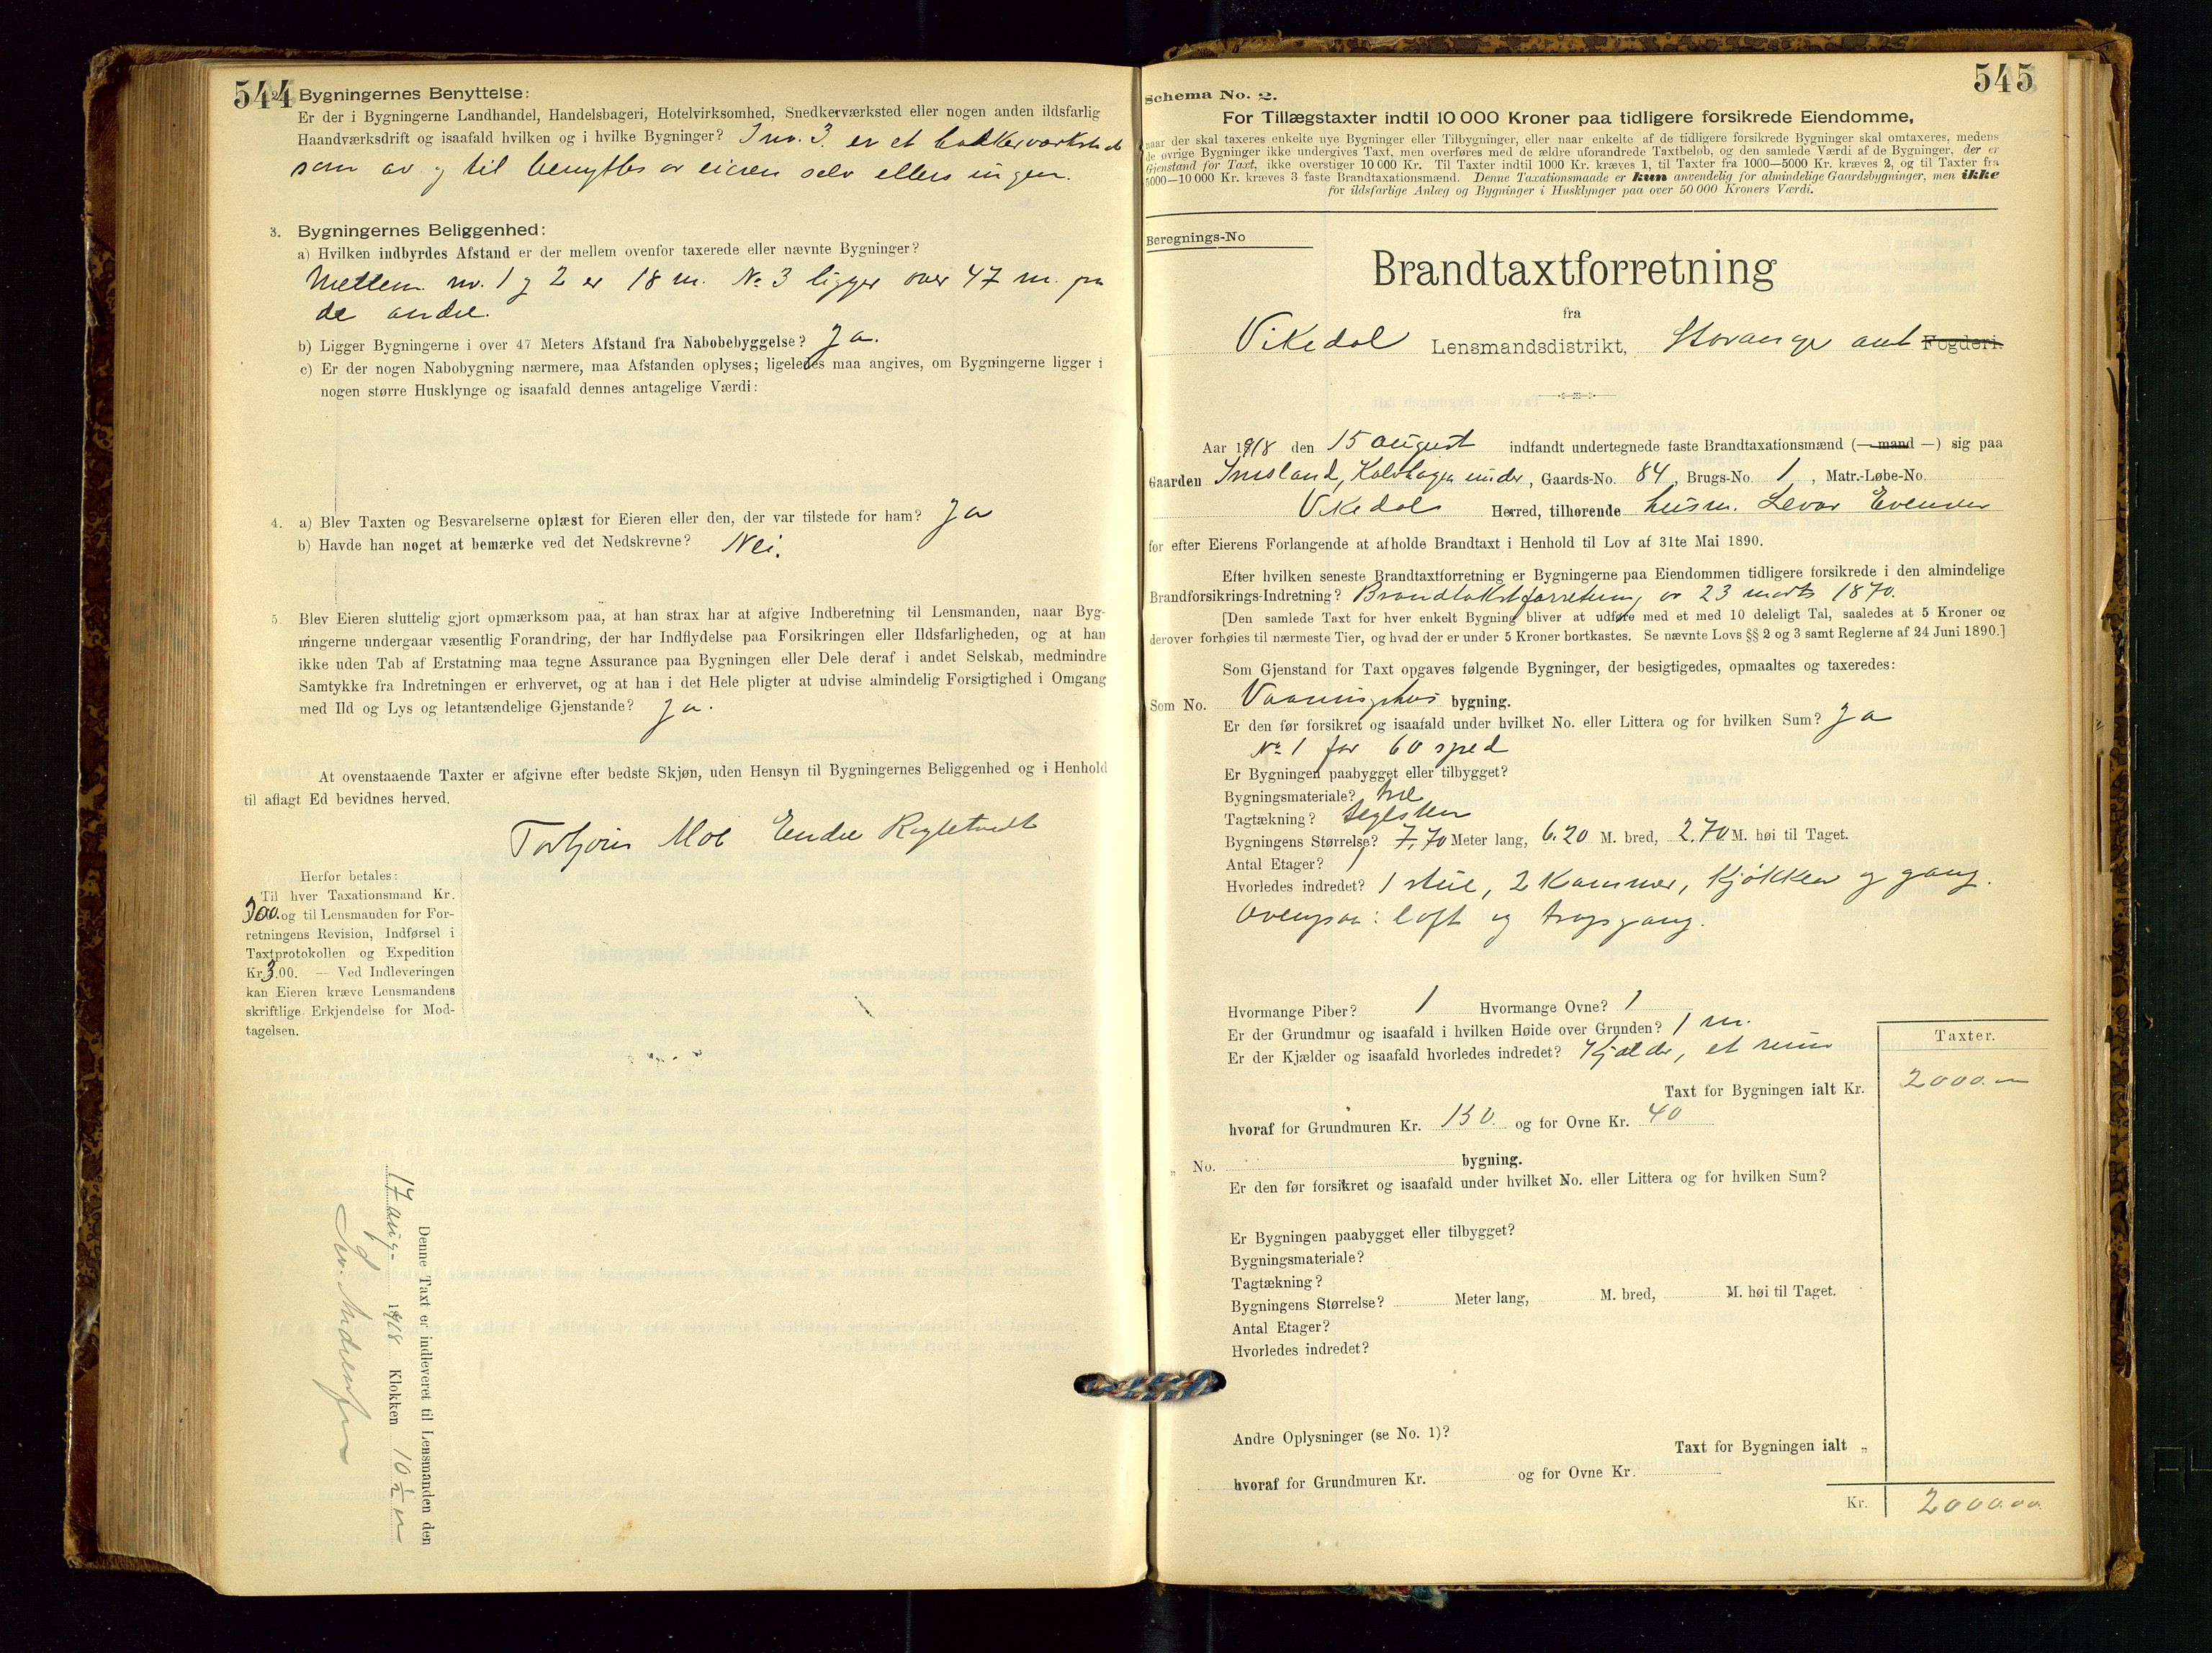 544
2. Bygningernes Benyttelse:
Er der i Bygningerne Landhandel, Handelsbageri, Hotelvirksomhed, Snedkerværksted eller nogen anden ildsfarlig
Haandværksdrift og isaafald hvilken og i hvilke Bygninger? I nr. 3. er et bødkerværksted
som av og til benyttes av eieren selv ellers ingen.
3. Bygningernes Beliggenhed:
a) Hvilken indbyrdes Afstand er der mellem ovenfor taxerede eller nævnte Bygninger?
Mellem nr. 1 og 2 er 18 m. No 3 ligger over 47 m. fra
de andre.
b) Ligger Bygningerne i over 47 Meters Afstand fra Nabobebyggelse? Ja.
c) Er der nogen Nabobygning nærmere, maa Afstanden oplyses; ligeledes maa angives, om Bygningerne ligger i
nogen større Husklynge og isaafald dennes antagelige Værdi:
4. a) Blev Taxten og Besvarelserne oplæst for Eieren eller den, der var tilstede for ham? Ja
b) Havde han noget at bemærke ved det Nedskrevne? Nei.
5. Blev Eieren sluttelig gjort opmærksom paa, at han strax har at afgive Indberetning til Lensmanden, naar Byg-
ningerne undergaar væsentlig Forandring, der har Indflydelse paa Forsikringen eller Ildsfarligheden, og at han
ikke uden Tab af Erstatning maa tegne Assurance paa Bygningen eller Dele deraf i andet Selskab, medmindre
Samtykke fra Indretningen er erhvervet, og at han i det Hele pligter at udvise almindelig Forsigtighed i Omgang
med Ild og Lys og letantændelige Gjenstande? Ja.
At ovenstaaende Taxter er afgivne efter bedste Skjøn, uden Hensyn til Bygningernes Beliggenhed og i Henhold
til aflagt Ed bevidnes herved.
Torbjørn Moe Endre
Herfor betales:
Til hver Taxationsmand Kr.
3.00. og til Lensmanden for For-
retningens Revision, Indførsel i
Taxtprotokollen og Expedition
Kr. 3.00. — Ved Indleveringen
kan Eieren kræve Lensmandens
skriftlige Erkjendelse for Mod-
tagelsen.
Denne Taxt er indleveret til Lensmanden den
17 aug. 1918 Klokken 10 1/2
545
Schema No. 2.
For Tillægstaxter indtil 10 000 Kroner paa tidligere forsikrede Eiendomme,
naar der skal taxeres enkelte nye Bygninger eller Tilbygninger, eller naar enkelte af de tidligere forsikrede Bygninger skal omtaxeres, medens
de øvrige Bygninger ikke undergives Taxt, men overføres med de ældre uforandrede Taxtbeløb, og den samlede Værdi af de Bygninger, der er
Gjenstand for Taxt, ikke overstiger 10 000 Kr. Til Taxter indtil 1000 Kr. kræves 1, til Taxter fra 1000—5000 Kr. kræves 2, og til Taxter fra
5000—10 000 Kr. kræves 3 faste Brandtaxationsmænd. Denne Taxationsmaade er kun anvendelig for almindelige Gaardsbygninger, men ikke
for ildsfarlige Anlæg og Bygninger i Husklynger paa over 50 000 Kroners Værdi.
Beregnings-No
Brandtaxtforretning
fra
Vikedal Lensmandsdistrikt, Stavanger amt Fogderi.
Aar 1918 den 15 august indfandt undertegnede faste Brandtaxationsmænd (— mand —) sig paa
Gaarden Imsland, Kalvhagen under, Gaards-No. 84, Brugs-No. 1, Matr.-Løbe-No.
Vikedal Herred, tilhørende husm. Levor Evensen
for efter Eierens Forlangende at afholde Brandtaxt i Henhold til Lov af 31te Mai 1890.
Efter hvilken seneste Brandtaxtforretning er Bygningerne paa Eiendommen tidligere forsikrede i den almindelige
Brandforsikrings-Indretning? Brandtakstforretning av 23 marts 1870.
[Den samlede Taxt for hver enkelt Bygning bliver at udføre med et med 10 deleligt Tal, saaledes at 5 Kroner og
derover forhøies til nærmeste Tier, og hvad der er under 5 Kroner bortkastes. Se nævnte Lovs §§ 2 og 3 samt Reglerne af 24 Juni 1890.]
Som Gjenstand for Taxt opgaves følgende Bygninger, der besigtigedes, opmaaltes og taxeredes:
Som No. Vaaningshus bygning.
Er den før forsikret og isaafald under hvilket No. eller Littera og for hvilken Sum? Ja
No 1 for 60 sped
Er Bygningen paabygget eller tilbygget?
Bygningsmateriale? træ
Tagtækning? teglsten
Bygningens Størrelse? 7,70 Meter lang, 6.20 M. bred, 2.70 M. høi til Taget.
Antal Etager? 1
Hvorledes indredet? 1 stue, 2 kammer, kjøkken og gang.
Ovenpaa: loft og trapgang.
Hvormange Piber? 1 Hvormange Ovne? 1
Er der Grundmur og isaafald i hvilken Høide over Grunden? 1 m.
Er der Kjælder og isaafald hvorledes indredet? Kjælder, et rum
Taxter.
Taxt for Bygningen ialt Kr. 2000.—
hvoraf for Grundmuren Kr. 150. og for Ovne Kr. 40
„ No. bygning.
Er den før forsikret og isaafald under hvilket No. eller Littera og for hvilken Sum?
Er Bygningen paabygget eller tilbygget?
Bygningsmateriale?
Tagtækning?
Bygningens Størrelse? Meter lang, M. bred, M. høi til Taget.
Antal Etager?
Hvorledes indredet?
Andre Oplysninger (se No. 1)?
Taxt for Bygningen ialt „
hvoraf for Grundmuren Kr. og for Ovne Kr.
Kr. 2000.00.